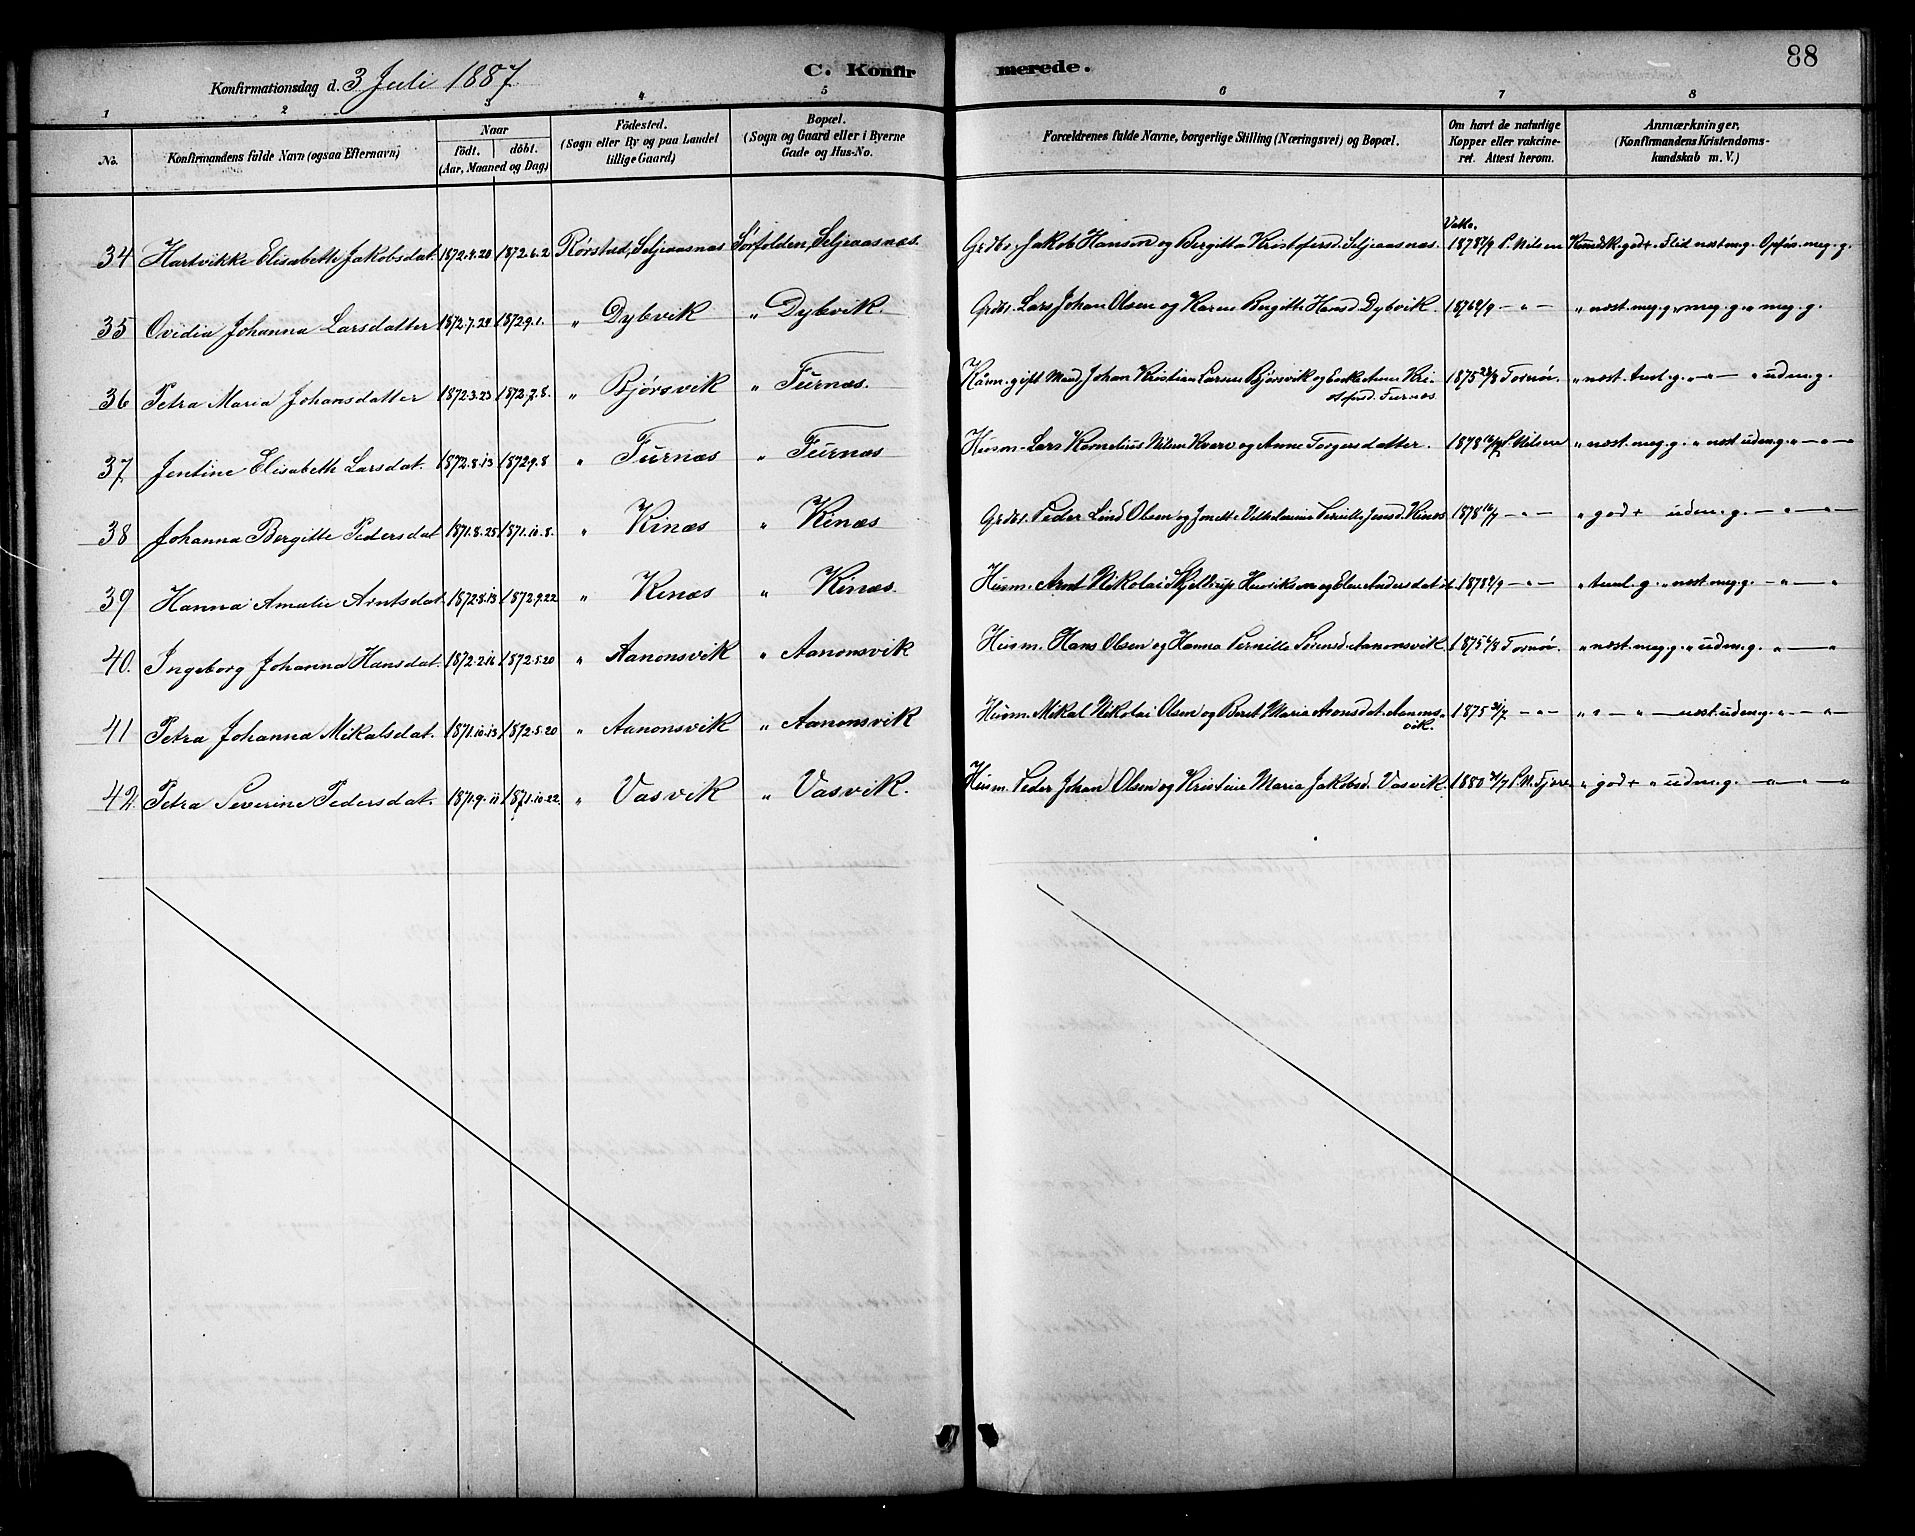 Konfirmationsdag d. 3 Juli 1887. C. Konfirmerede. 88
1 2 3 4 5 6 7 8
No. Konfirmandens fulde Navn (ogsaa Efternavn) Naar födt. döbt. (Aar, Maaned og Dag) Födested. (Sogn eller By og paa Landet tillige Gaard) Bopæl. (Sogn og Gaard eller i Byerne Gade og Hus-No. Forældrenes fulde Navne, borgerlige Stilling (Næringsvei) og Bopæl. Om havt de naturlige Kopper eller vakcineret. Attest herom. Anmærkninger. (Konfirmandens Kristendomskundskab m. V.)
34 Hartvikke Elisabeth Jakobsdat. 1872.4.20 1872.6.2 Rørstad, Seljeaasnæs Sørfolden, Seljeaasnæs. Grdbr. Jakob Hansen og Bergitta Kristofersd. Seljeaasnæs. Vakc. 1878 P. Nilsen Kundsk. god+ Flid næst meg. g. Opfør. meg. g.
35 Ovidia Johanna Larsdatter 1872.7.29 1872.9.1. " Dybvik " Dybvik. Grdbr. Lars Johan Olsen og Karen Bergitte Hansd. Dybvik. 1876 2/9 — " — " næst. meg. g. " meg. g. " meg. g.
36 Petra Maria Johansdatter 1872.3.23 1872.7.8. " Bjørsvik " Furnæs. gift Mand Johan Kristian Larsen Bjørsvik og Enke Anne Kristofersd. Furnæs. 1875 Tornør. " næst. tml. g. " — " — " udm. g.
37. Jentine Elisabeth Larsdat. 1872.8.13 1872.9.8 " Furnæs " Furnæs Husm. Lars Kornelius Nilsen Kvarv og Anne Torgersdatter. 1878 P. Nilsen " næst. meg. g. " næst udm. g. " — " — "
38 Johanna Bergitte Pedersdat 1871.8.25 1871.10.8. " Kinæs " Kinæs Grdbr. Peder Lind Olsen og Jonette Vilhelmine Pernille Jensd. Kinæs 1878 — " — " god + udm. g. — " — " — "
39 Hanna Amalie Arntsdat. 1872.8.13 1872.9.22 " Kinæs " Kinæs. Husm. Arnt Nikolai Skjeldrup Henriksen og Else Andersdat. 1878 — " — " tml. g. " næst. meg. g. — " — "
40. Ingeborg Johanna Hansdat. 1872.2.16 1872.5.20 " Aanonsvik " Aanonsvik Husm. Hans Olsen og Hanna Pernille Sørensd. Aanonsvik. 1875 Tornør. " næst. meg. g. " udm. g. " — "
41 Petra Johanna Mikalsdat. 1871.10.13 1872.5.20 " Aanonsvik " Aanonsvik Husm. Mikal Nikolai Olsen og Beret Maria Aronsdat. Aanonsvik. 1875 — " — " " — " — næst. udm. g. " — " — "
42. Petra Severine Pedersdat. 1871.9.11 1871.10.22. " Vasvik " Vasvik. Husm. Peder Johan Olsen og Kristine Maria Jakobsd. Vasvik. 1880 P. M. Fjære " god + " udm. g. — " — " — "